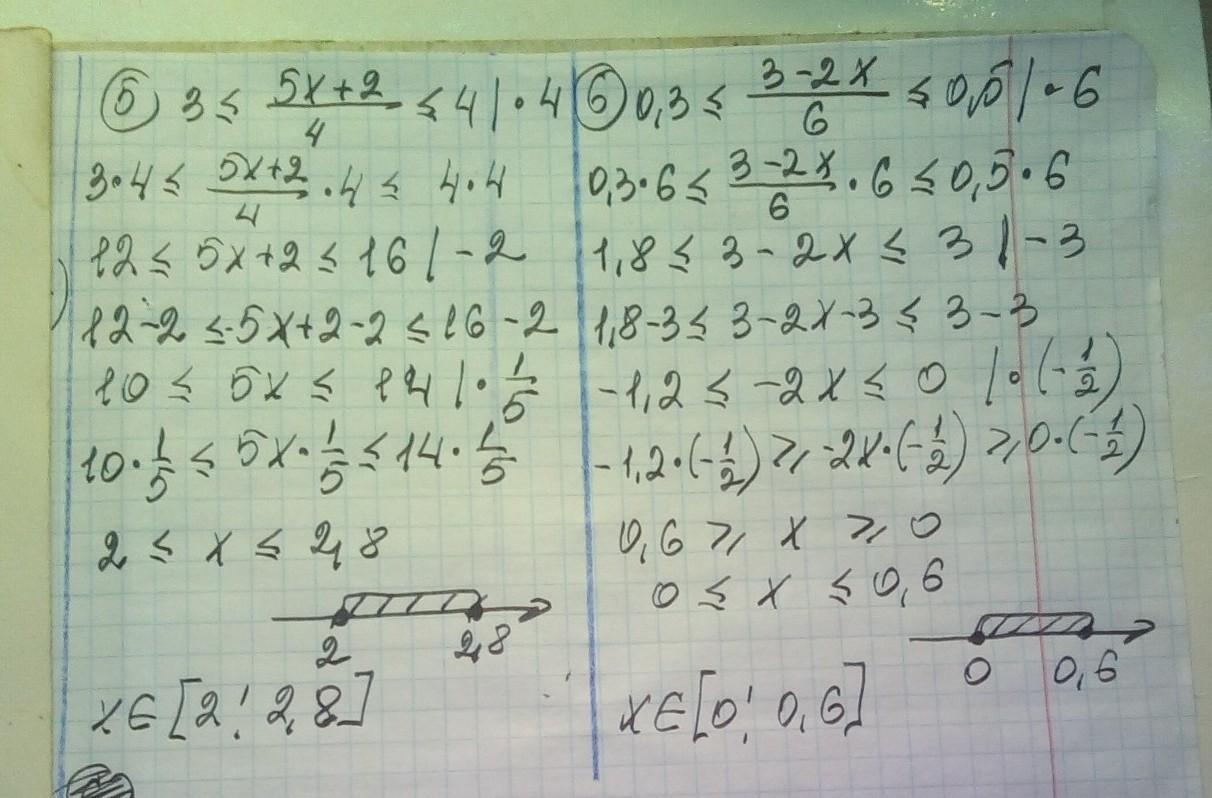 ⑤ 3 ≤ (5x+2)/4 ≤ 4 | • 4
3•4 ≤ (5x+2)/4 • 4 ≤ 4•4
12 ≤ 5x+2 ≤ 16 | -2
12-2 ≤ 5x+2-2 ≤ 16-2
10 ≤ 5x ≤ 14 | • 1/5
10 • 1/5 ≤ 5x • 1/5 ≤ 14 • 1/5
2 ≤ x ≤ 2,8
2 2,8
x∈[2; 2,8]
⑥ 0,3 ≤ (3-2x)/6 ≤ 0,5 | • 6
0,3•6 ≤ (3-2x)/6 • 6 ≤ 0,5•6
1,8 ≤ 3-2x ≤ 3 | -3
1,8-3 ≤ 3-2x-3 ≤ 3-3
-1,2 ≤ -2x ≤ 0 | • (-1/2)
-1,2•(-1/2) ≥ -2x•(-1/2) ≥ 0•(-1/2)
0,6 ≥ x ≥ 0
0 ≤ x ≤ 0,6
0 0,6
x∈[0; 0,6]